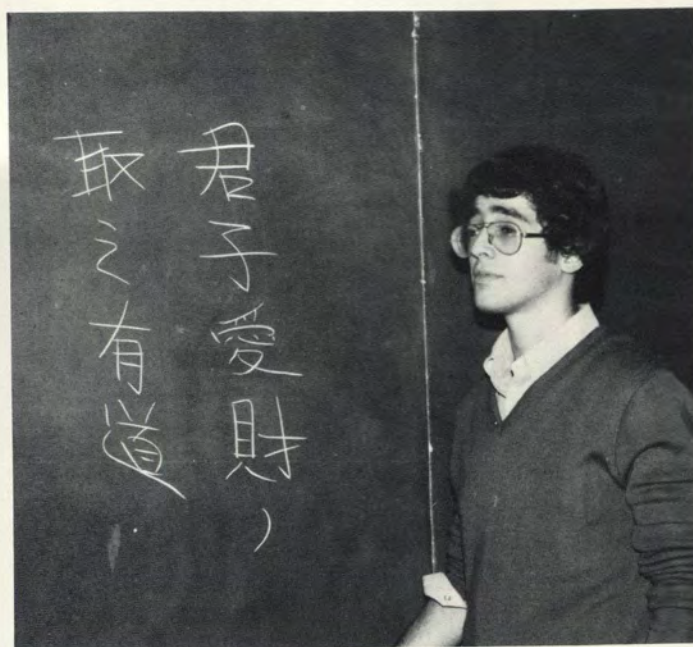 君子愛財，
取之有道.